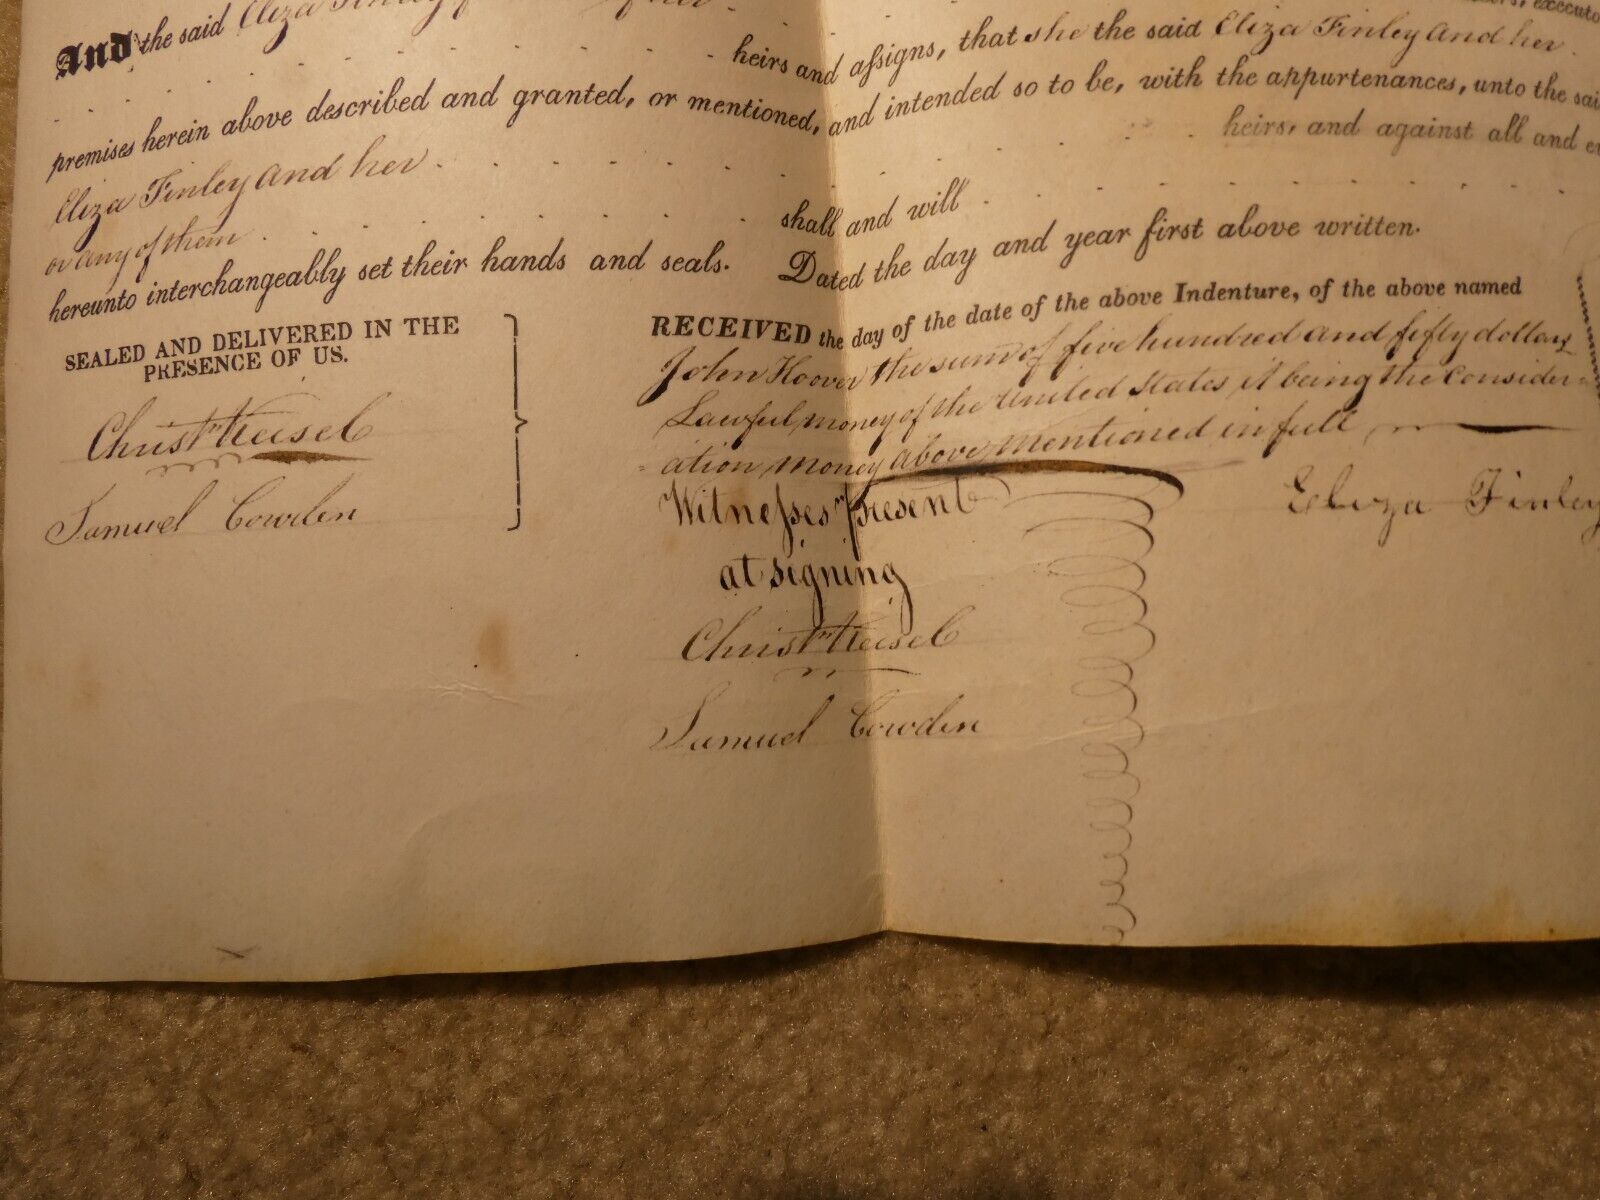 And the said Eliza Finley
heirs and assigns, that she the said Eliza Finley and her
premises herein above described and granted, or mentioned, and intended so to be, with the appurtenances, unto the sai
heirs, and against all and e
Eliza Finley and her
or any of them shall and will
hereunto interchangeably set their hands and seals. Dated the day and year first above written.
SEALED AND DELIVERED IN THE
PRESENCE OF US.
Samuel Cowden
RECEIVED the day of the date of the above Indenture, of the above named
John Hoover the sum of five hundred and fifty dollars
Lawful money of the United States it being the Consider=
=ation money above mentioned in full
Witnesses Present
at signing
Samuel Cowden
Eliza Finley